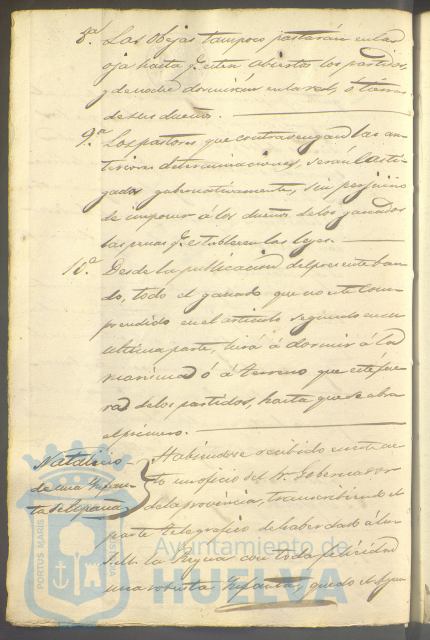 8ª. Las Obejas tampoco pastarán en la
oja hasta q.e esten abiertos los partidos,
y de noche dormirán en la red, ó tierras
de sus dueños.
9ª. Los pastores que contravengan las an-
teriores determinaciones, serán Casti-
gados gubernativamente, sin perjuicio
de imponer á los dueños de los ganados
las penas q.e establecen las leyes.
10ª. Desde la publicacion del presente ban-
do, todo el ganado que no esté Com-
prendido en el articulo segundo en su
ultima parte, irá á dormir á la
marisma ó á terreno que esté fue-
ra de los partidos, hasta que se abra
el primero.
Natalicio
de una Infan-
ta de España
Habiendose recibido en este ac-
to un oficio del Sr. Gobernador
de la provincia, transcribiendo el
parte telegrafico de haber dado á luz
la Reyna con toda felicidad
una robusta Infanta, quedó el Ayun-
PORTUS MARIS
Ayuntamiento de
HUELVA